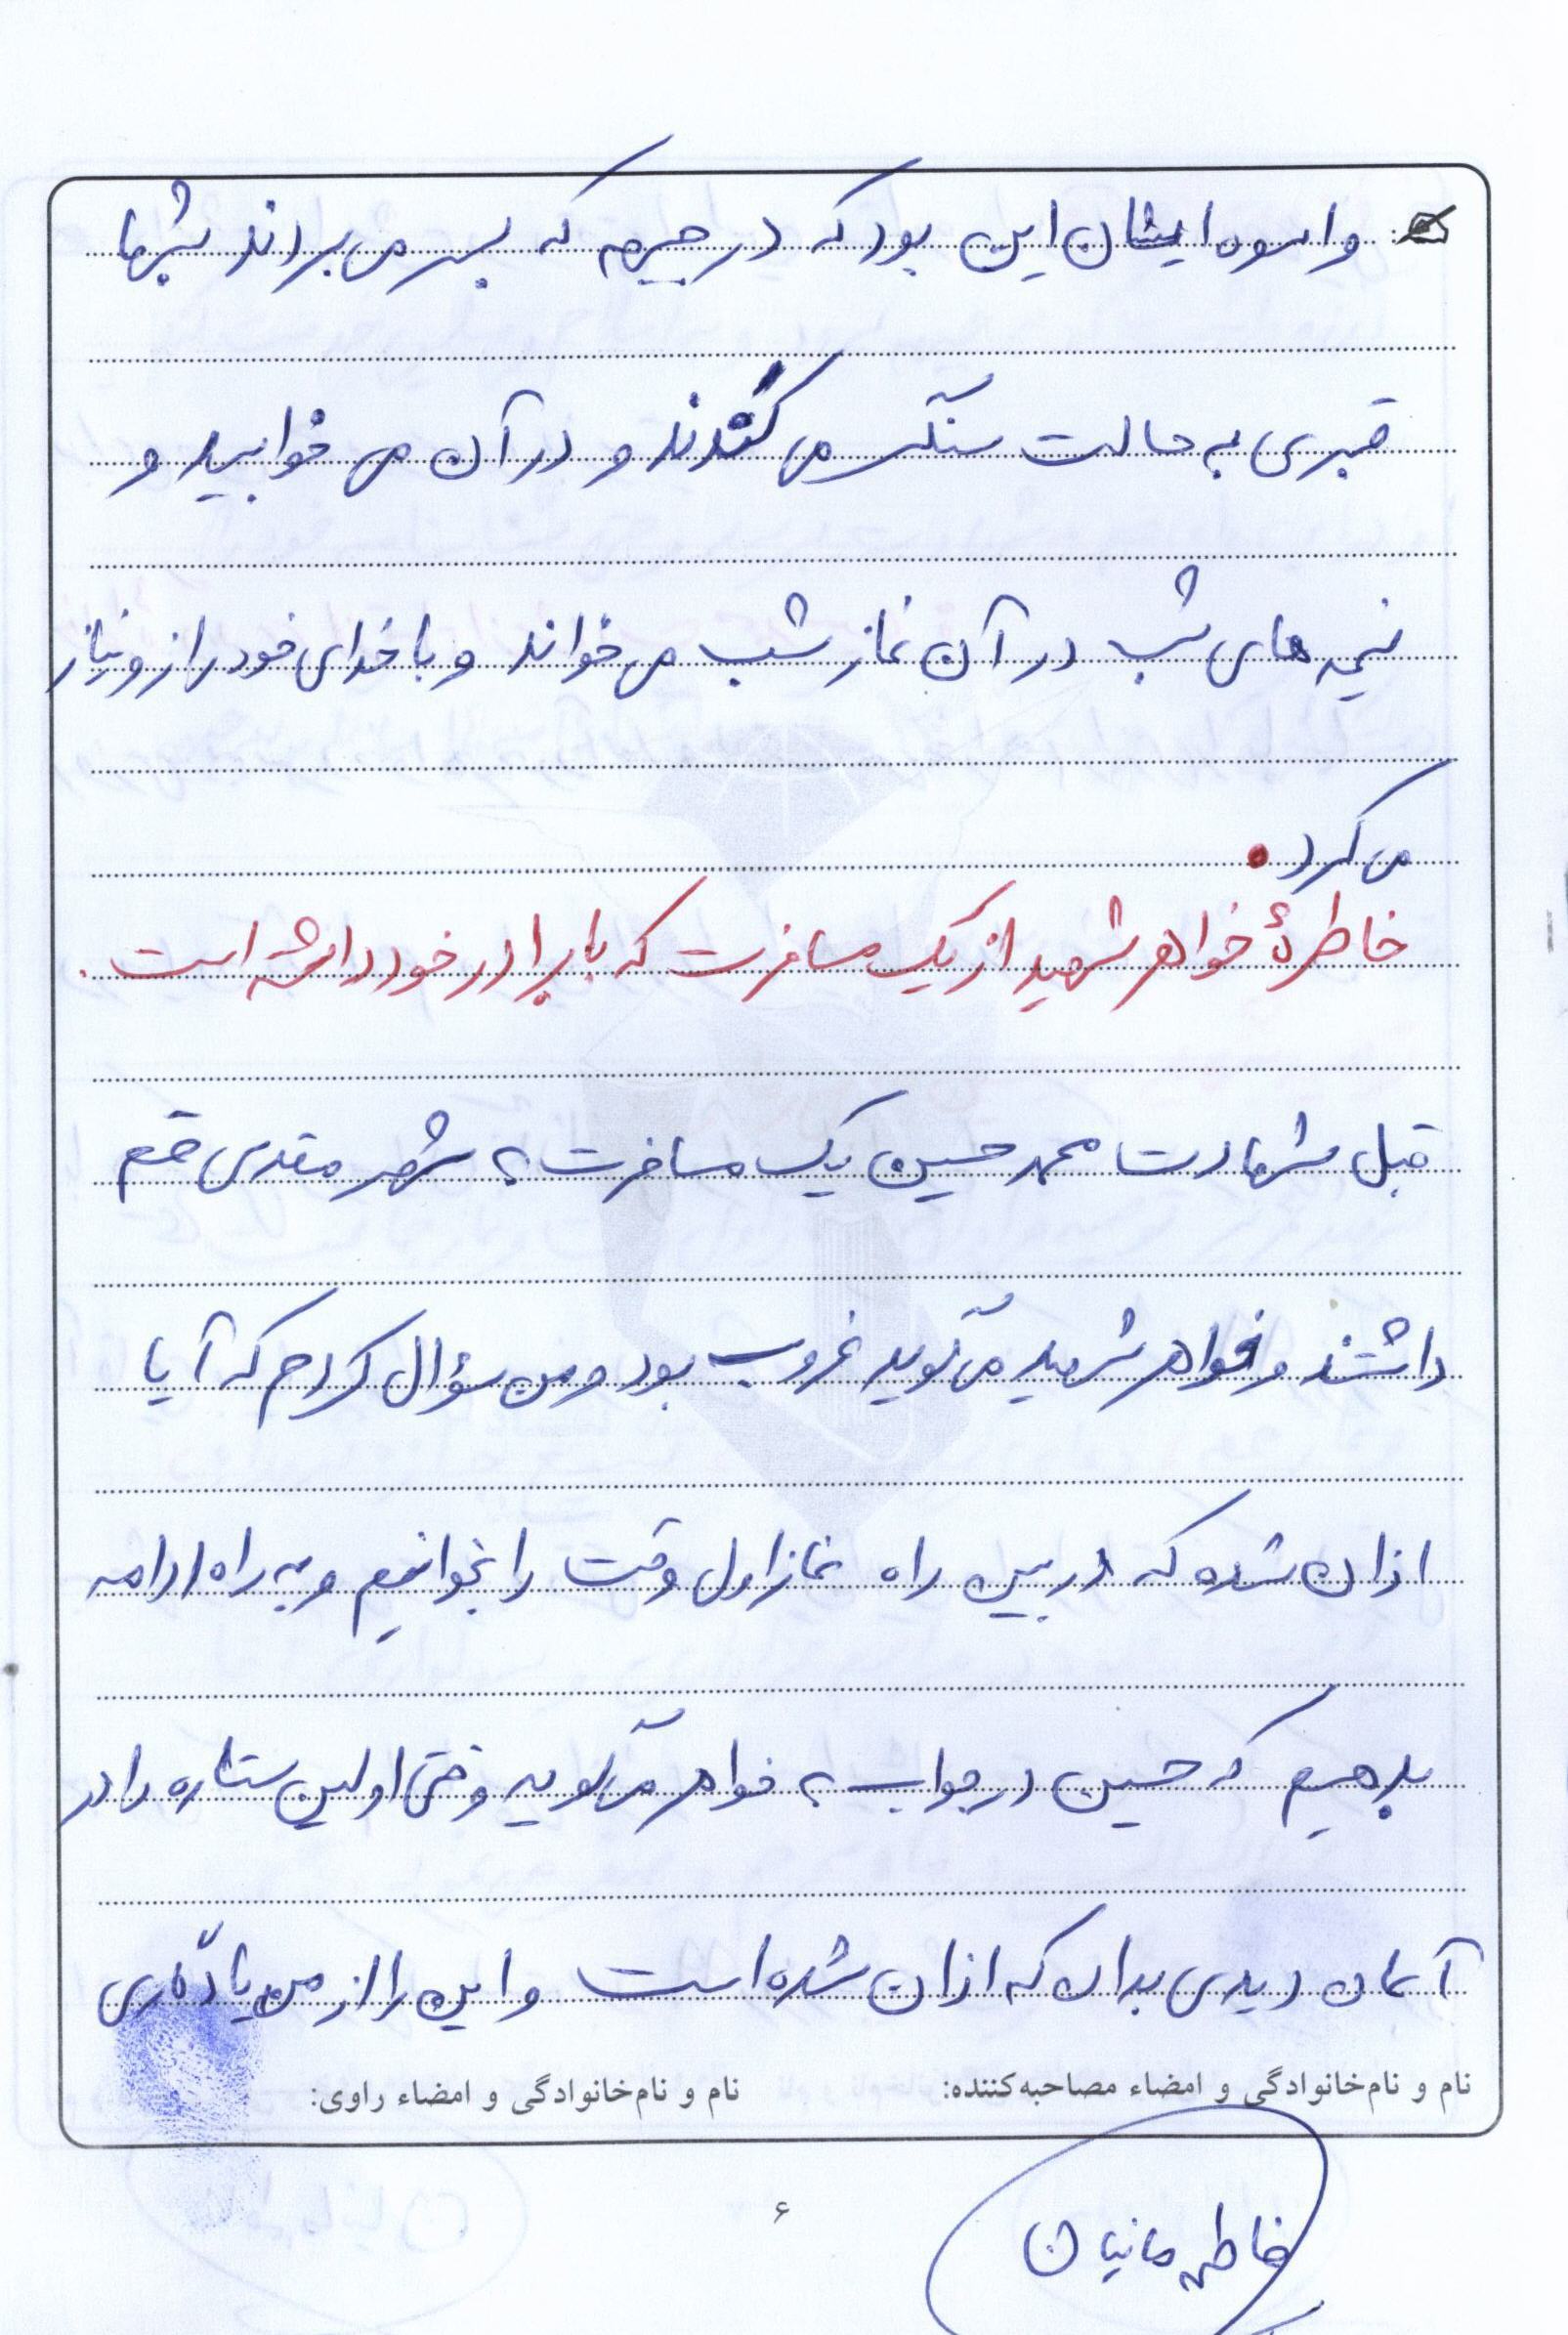 و اسوه ایشان این بود که در جبهه که بسر می بردند شبها
قبری به حالت سنگر می کندند و در آن می خوابید و
نیمه های شب در آن نماز شب می خواند و با خدای خود راز و نیاز
می کرد.
خاطرهٔ خواهر شهید از یک مسافرت که با برادر خود داشته است.
قبل شهادت محمد حسین یک مسافرت به شهر مقدس قم
داشتند و خواهر شهید می گوید غروب بود و من سؤال کردم که آیا
اذان شده که در بین راه نماز اول وقت را بخوانیم و به راه ادامه
بدهیم که حسین در جواب به خواهر می گوید وقتی اولین ستاره را در
آسمان دیدی بدان که اذان شده است و این را از من یادگاری
نام و نام‌خانوادگی و امضاء مصاحبه‌کننده: نام و نام‌خانوادگی و امضاء راوی:
۶
فاطمه مانیان